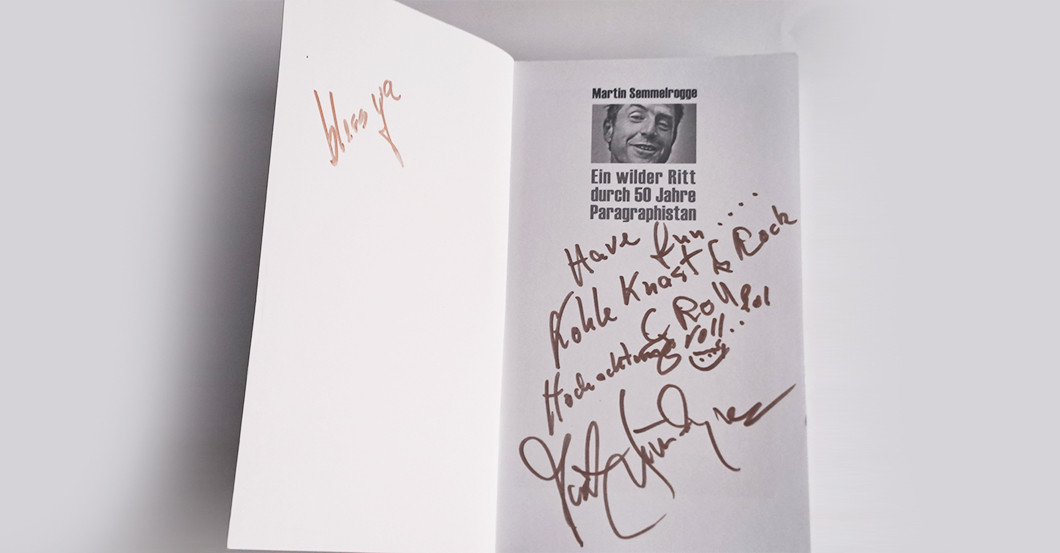 bless ya
Martin Semmelrogge
Ein wilder Ritt
durch 50 Jahre
Paragraphistan
Have fun .....
Kohle Knast & Rock
& Roll
Hochachtungsvoll...